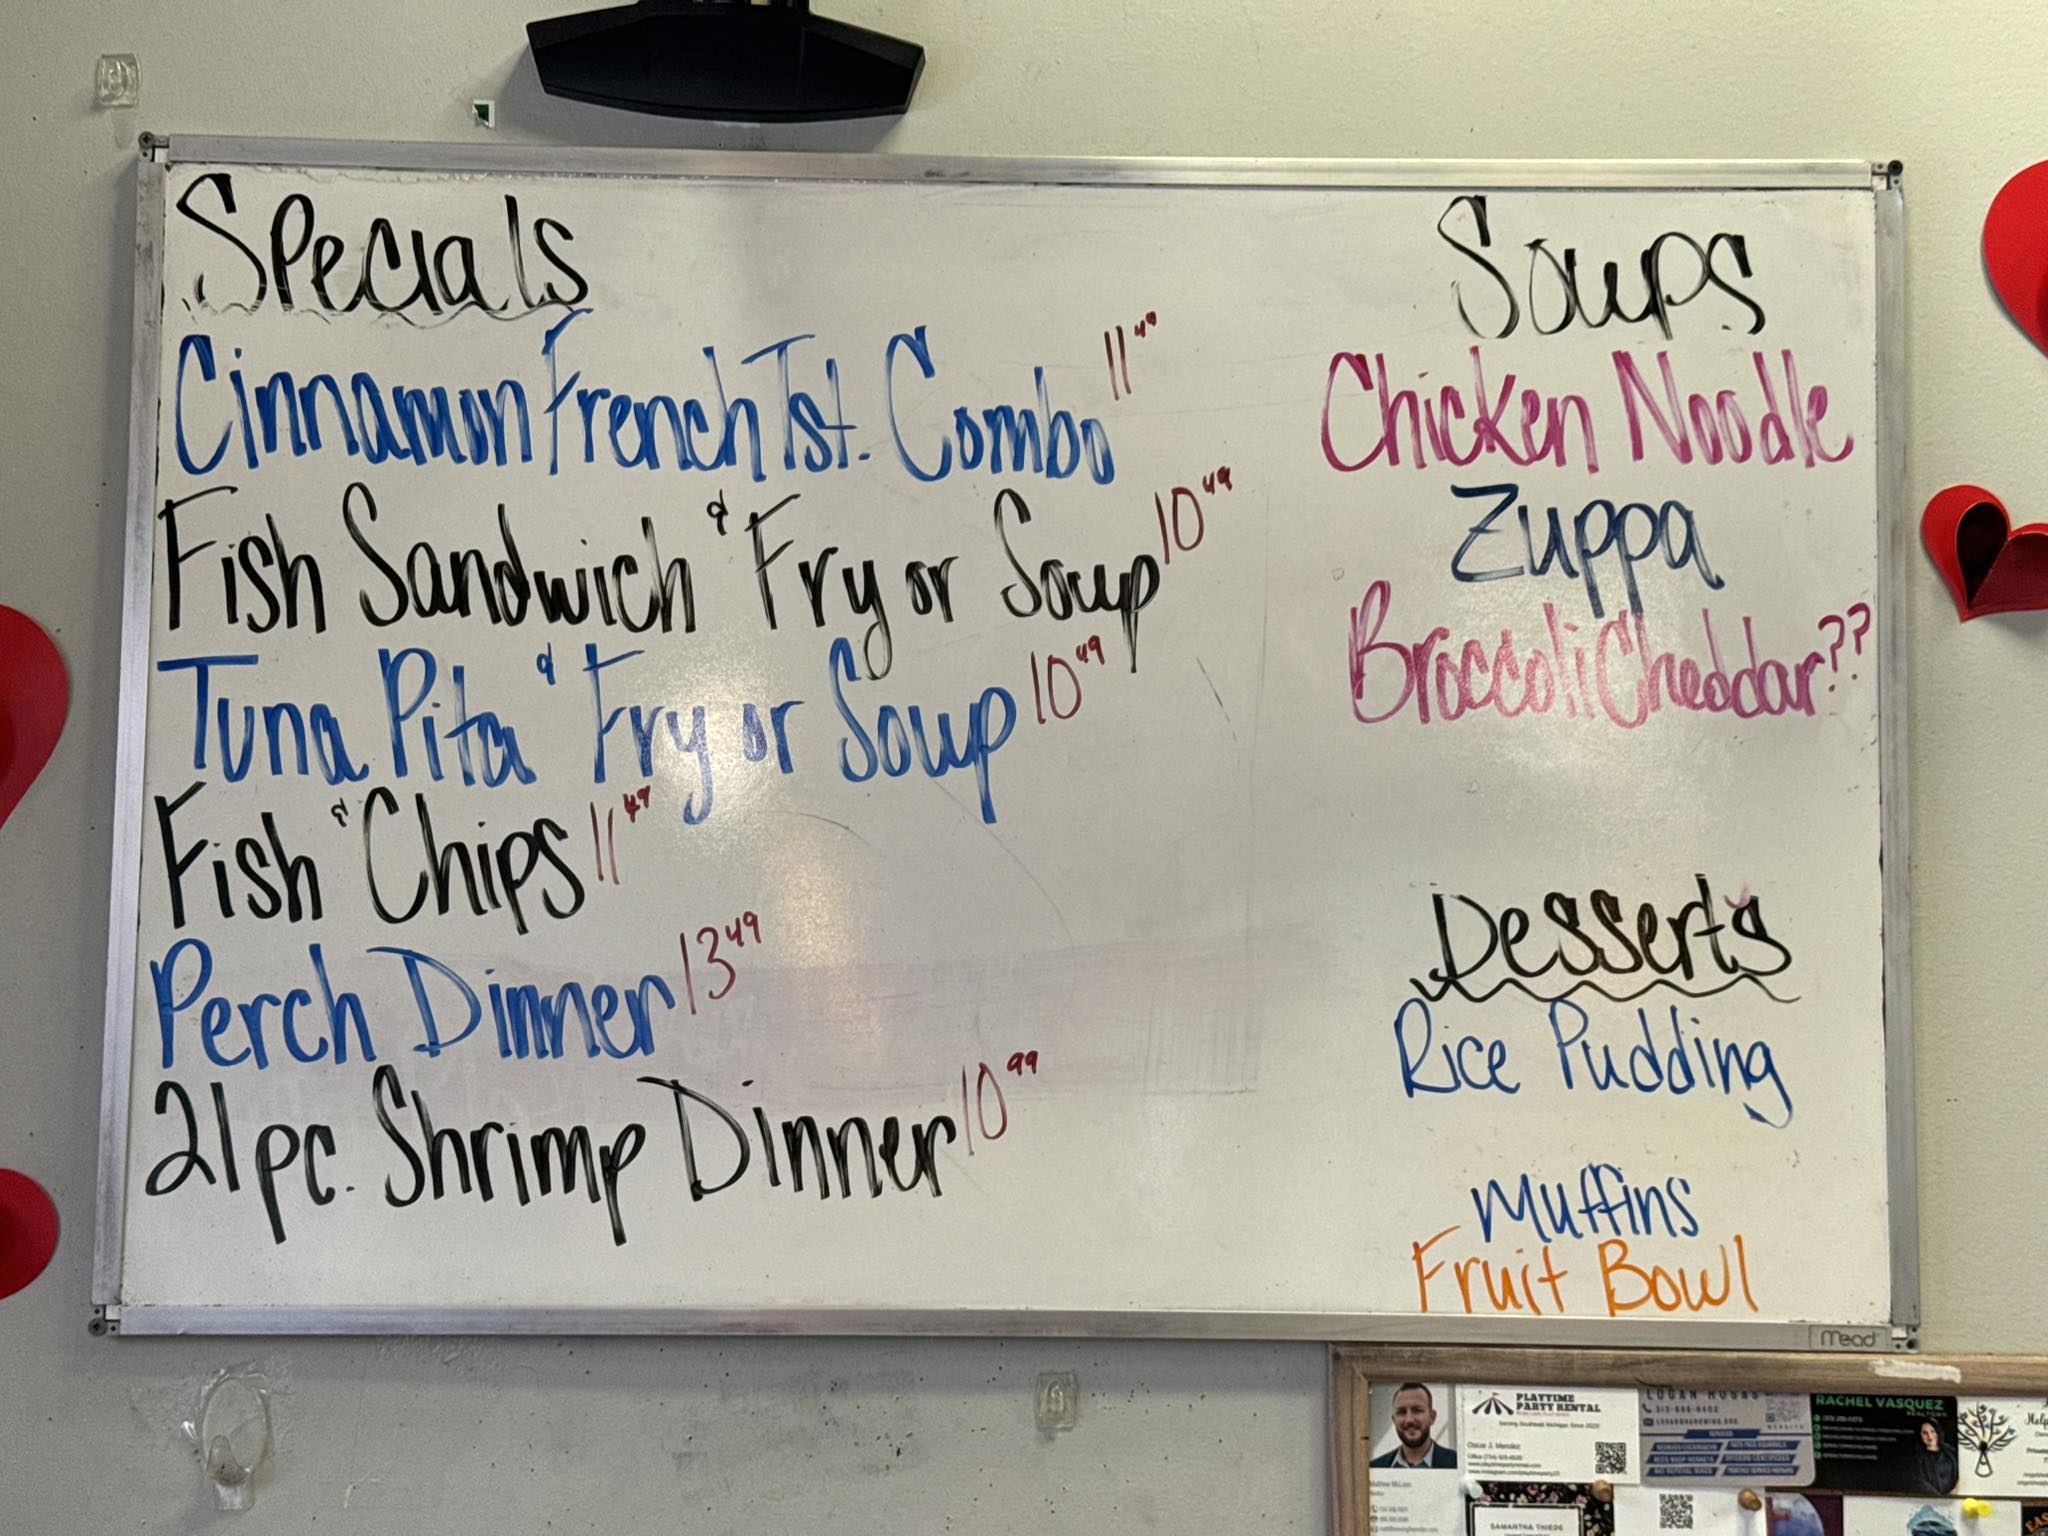 Specials
Cinnamon French Tst. Combo 11.49
Fish Sandwich & Fry or Soup 10.49
Tuna Pita & Fry or Soup 10.49
Fish & Chips 11.49
Perch Dinner 13.49
21 pc. Shrimp Dinner 10.99
Soups
Chicken Noodle
Zuppa
Broccoli Cheddar??
Desserts
Rice Pudding
Muffins
Fruit Bowl
Mead
PLAYTIME
PARTY RENTAL
Oscar J. Mendez
LOGAN ROSAS
RACHEL VASQUEZ
REALTOR
SAMANTHA THIEDE